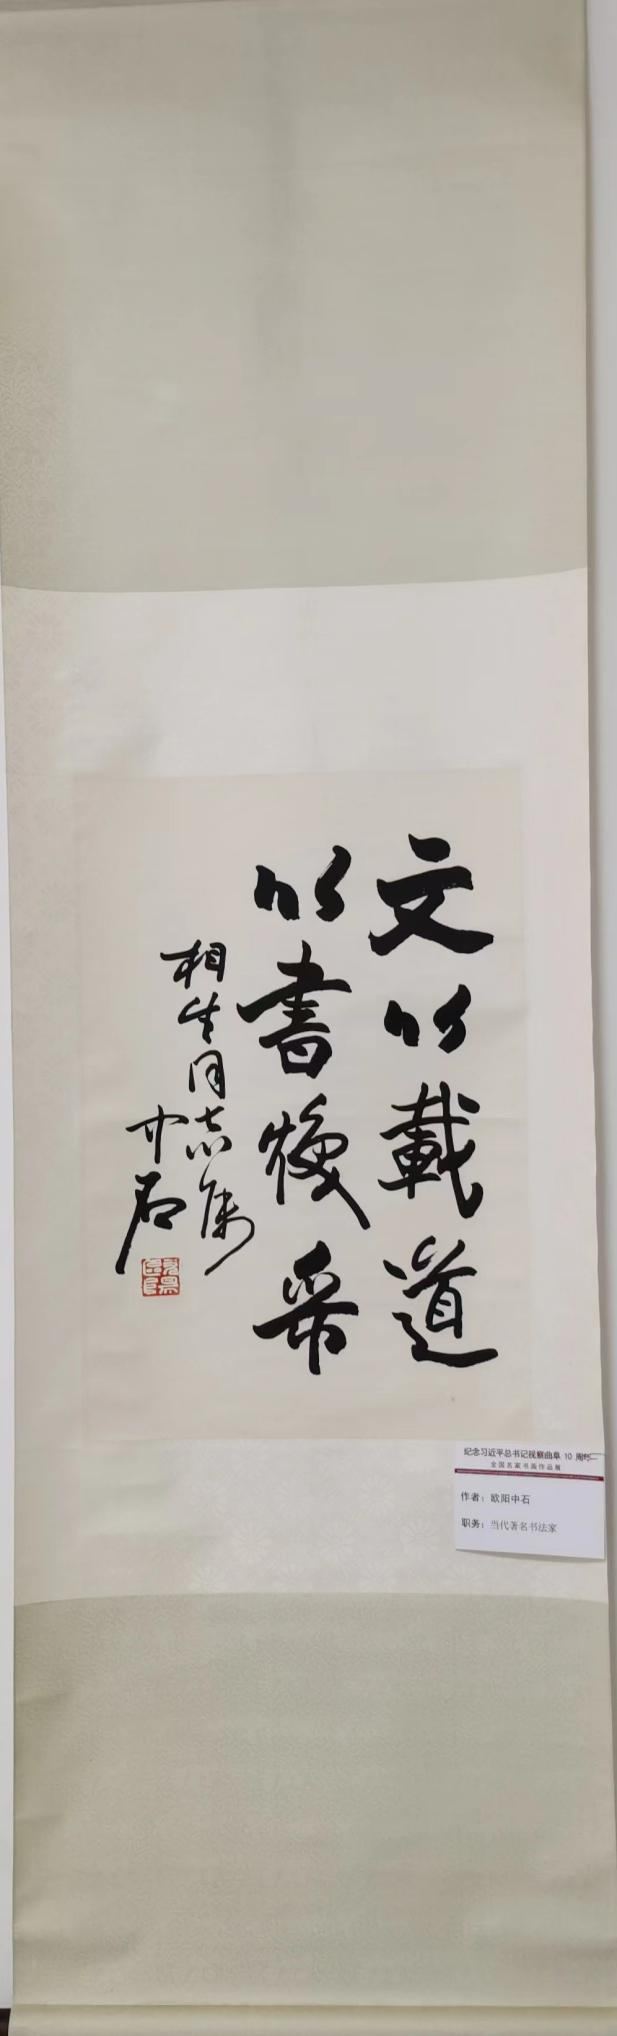 文以載道
以書焕采
相生同志属
中石
纪念习近平总书记视察曲阜 10 周年
全国名家书画作品展
作者：欧阳中石
职务：当代著名书法家